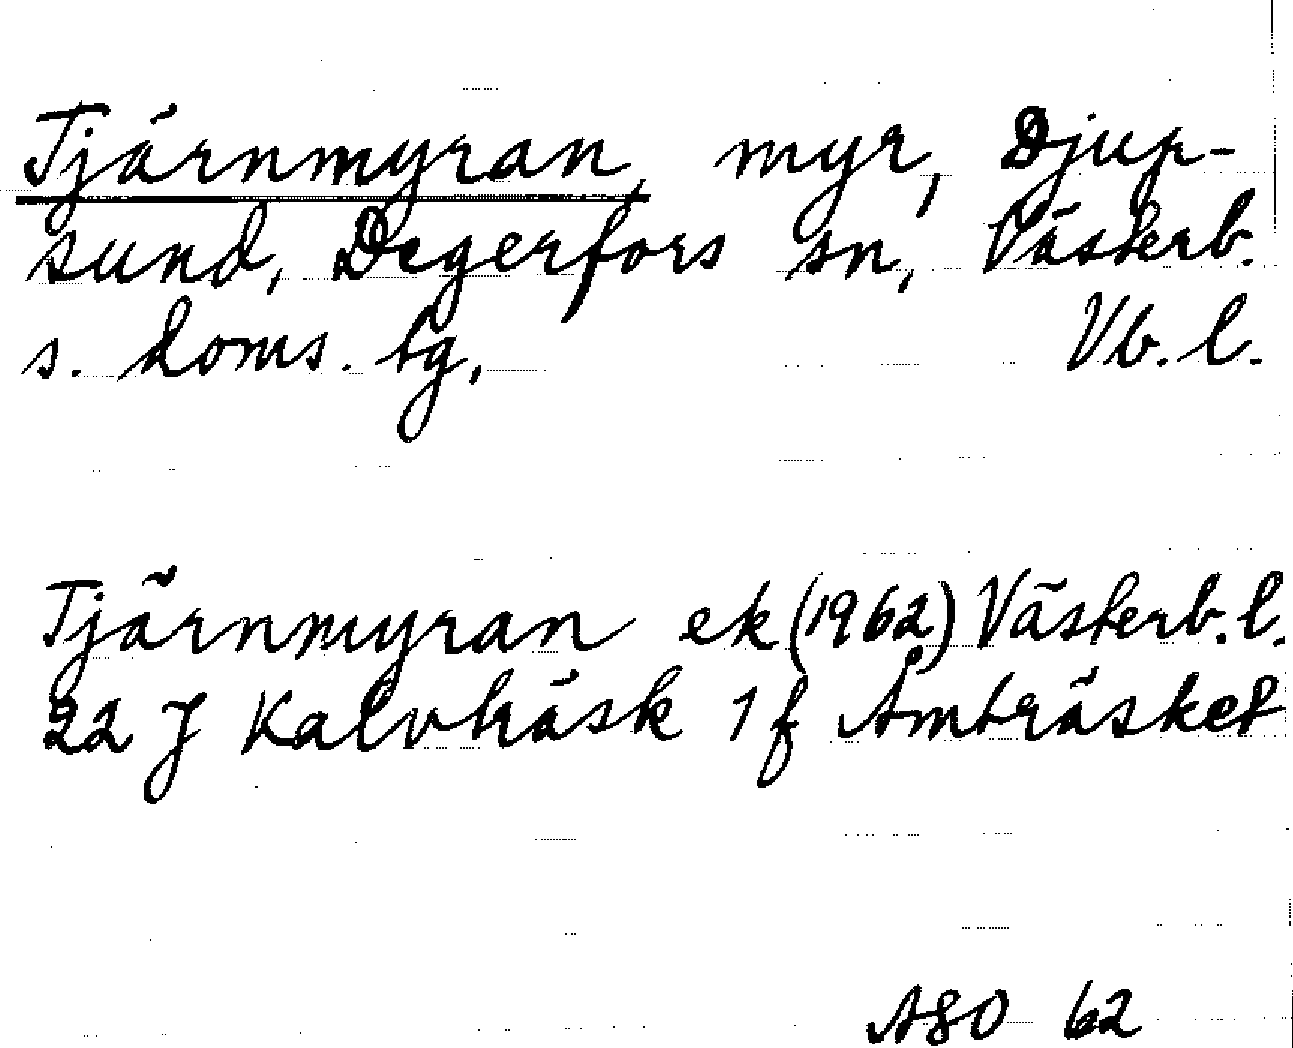 Tjärnmyran, myr, Djup-
sund, Degerfors sn, Västerb.
s. doms. tg, Vb. l.
Tjärnmyran ek (1962) Västerb. l.
22 J Kalvträsk 1 f Åmträsket
ASO 62